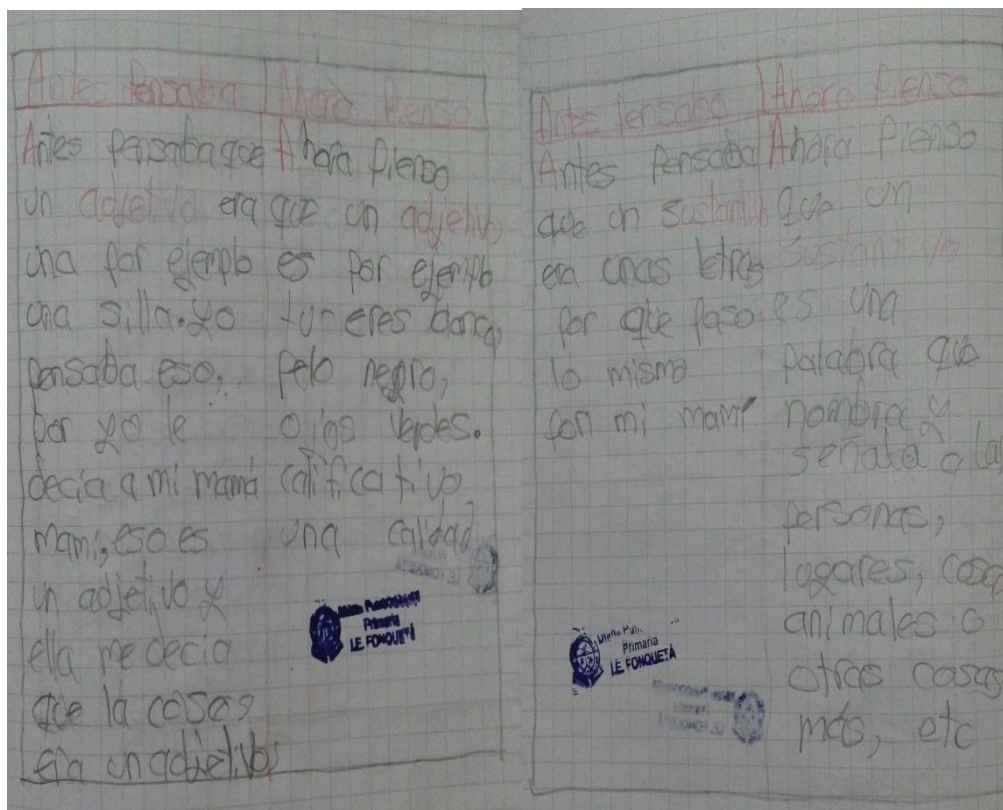 Antes Pensaba
Antes Pensaba que
un adjetivo era
una por ejemplo
una silla. yo
pensaba eso,
por yo le
decia a mi mamá
mami, eso es
un adjetivo y
ella me decia
que la cosas
era un adjetivos
Ahora Pienso
Ahora Pienso
que un adjetivo
es por ejemplo
tu eres blanca,
pelo negro,
ojos verdes.
calificativo
una calidad
Primaria
LE FONQUETÁ
Antes Pensaba
Antes Pensaba
que un sustantivo
era unas letras
por que paso
lo mismo
con mi mami
Ahora Pienso
Ahora Pienso
que un
sustantivo
es una
palabra que
nombra y
señala a la
personas,
lugares, cosa
animales o
otras cosas
más, etc
Primaria
LE FONQUETÁ